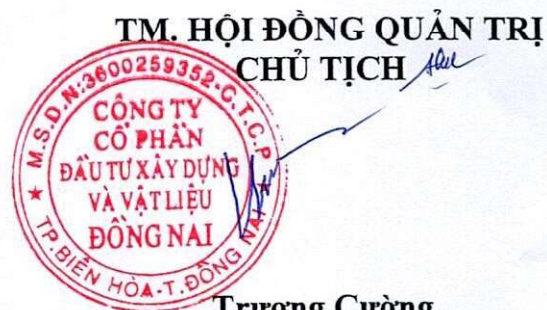 TM. HỘI ĐỒNG QUẢN TRỊ
CHỦ TỊCH
M.S.D.N:3600259352-C.T.C.P
CÔNG TY
CỔ PHẦN
ĐẦU TƯ XÂY DỰNG
VÀ VẬT LIỆU
ĐỒNG NAI
TP.BIÊN HÒA-T.ĐỒNG NAI
Trương Cường